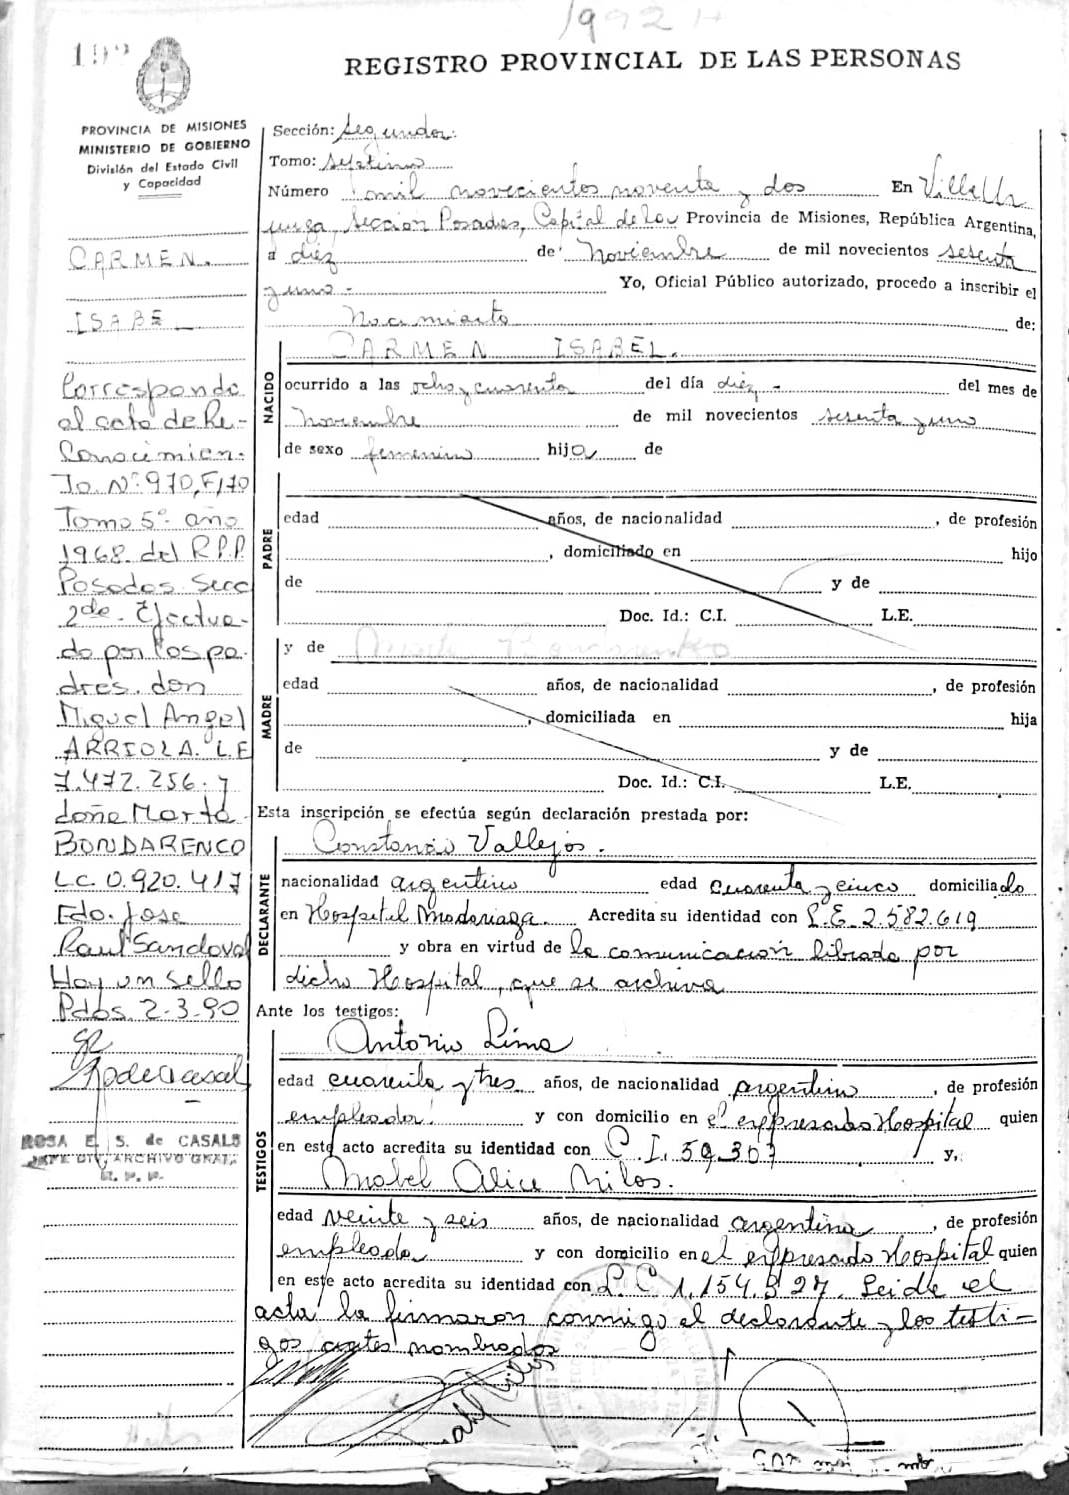 1992
192
REGISTRO PROVINCIAL DE LAS PERSONAS
PROVINCIA DE MISIONES
MINISTERIO DE GOBIERNO
División del Estado Civil
y Capacidad
CARMEN.
ISABEL
Corresponde
al acta de Re-
conocimien-
to. Nº 970, F/70
Tomo 5º año
1968 del R.P.P.
Posadas Secc
2da. Efectua-
da por los pa-
dres. don
Miguel Angel
ARRIOLA. L.E
7.472.256. y
doña Marta
BONDARENCO
L.C. 0.920.417
Fdo. Jose
Raul Sandoval
Hay un sello
Pdas 2-3-90
ROSA E. S. de CASALS
JEFE DIV. ARCHIVO GRAL.
R. P. P.
Sección: Segunda.
Tomo: septimo
Número mil novecientos noventa y dos En Villa Ur
quiza, Seccion Posadas, Capital de la Provincia de Misiones, República Argentina,
a diez de Noviembre de mil novecientos sesenta
y uno - Yo, Oficial Público autorizado, procedo a inscribir el
Nacimiento de:
NACIDO
CARMEN ISABEL.
ocurrido a las ocho y cuarenta del día diez - del mes de
Noviembre de mil novecientos sesenta y uno
de sexo femenino hija de
PADRE
edad años, de nacionalidad , de profesión
, domiciliado en hijo
de y de
Doc. Id.: C.I. L.E.
y de
MADRE
edad años, de nacionalidad , de profesión
, domiciliada en hija
de y de
Doc. Id.: C.I. L.E.
Esta inscripción se efectúa según declaración prestada por:
DECLARANTE
Constancio Vallejos.
nacionalidad argentino edad cuarenta y cinco domiciliado
en Hospital Madariaga. Acredita su identidad con L.E. 2.582.619
y obra en virtud de la comunicacion librada por
dicho Hospital, que se archiva
Ante los testigos:
TESTIGOS
Antonio Lima
edad cuarenta y tres años, de nacionalidad argentino , de profesión
empleado y con domicilio en el expresado Hospital quien
en este acto acredita su identidad con C. I. 59.307 y,
Mabel Alice Milos.
edad veinte y seis años, de nacionalidad argentina , de profesión
empleada y con domicilio en el expresado Hospital quien
en este acto acredita su identidad con L.C 1.154.827. Leida el
acta la firmaron conmigo el declarante y los testi-
gos antes nombrados